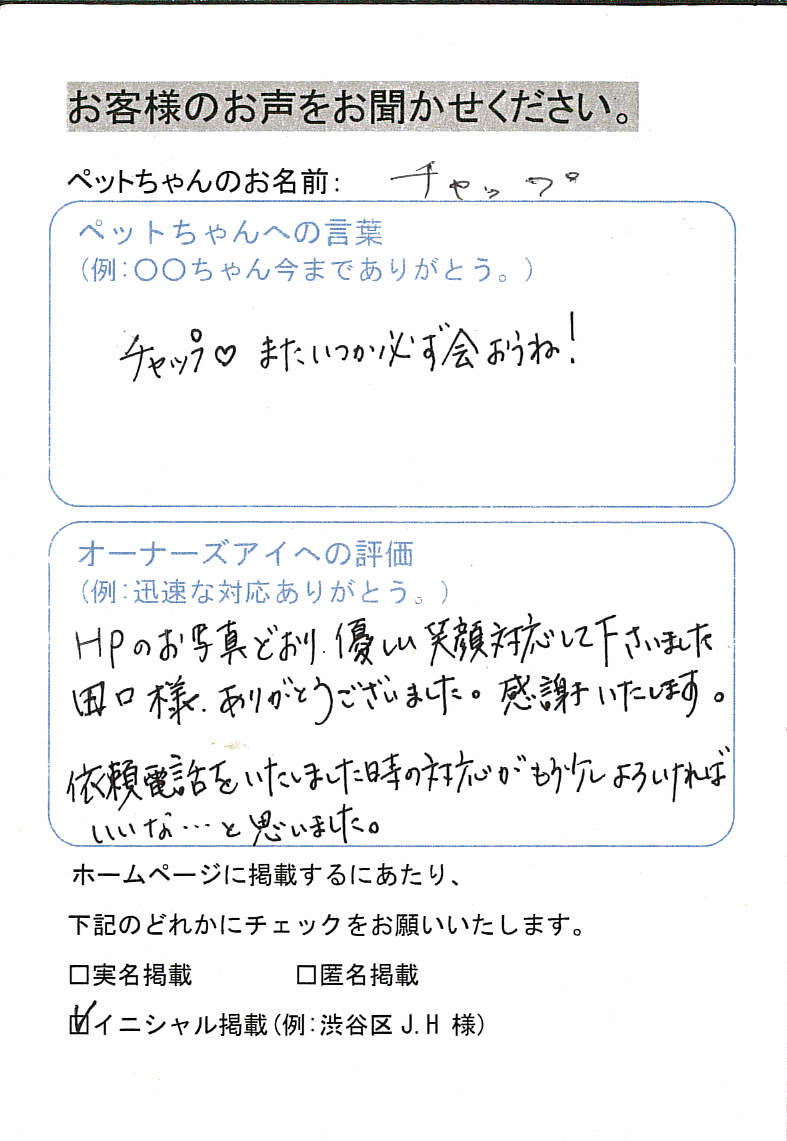 お客様のお声をお聞かせください。
ペットちゃんのお名前: チャップ
ペットちゃんへの言葉
(例:〇〇ちゃん今までありがとう。)
チャップ♡ またいつか必ず会おうね!
オーナーズアイへの評価
(例:迅速な対応ありがとう。)
HPのお写真どおり、優しい笑顔対応して下さいました
田口様、ありがとうございました。感謝いたします。
依頼電話をいたしました時の対応がもう少しよろしければ
いいな…と思いました。
ホームページに掲載するにあたり、
下記のどれかにチェックをお願いいたします。
□実名掲載 □匿名掲載
☑イニシャル掲載(例:渋谷区J.H 様)